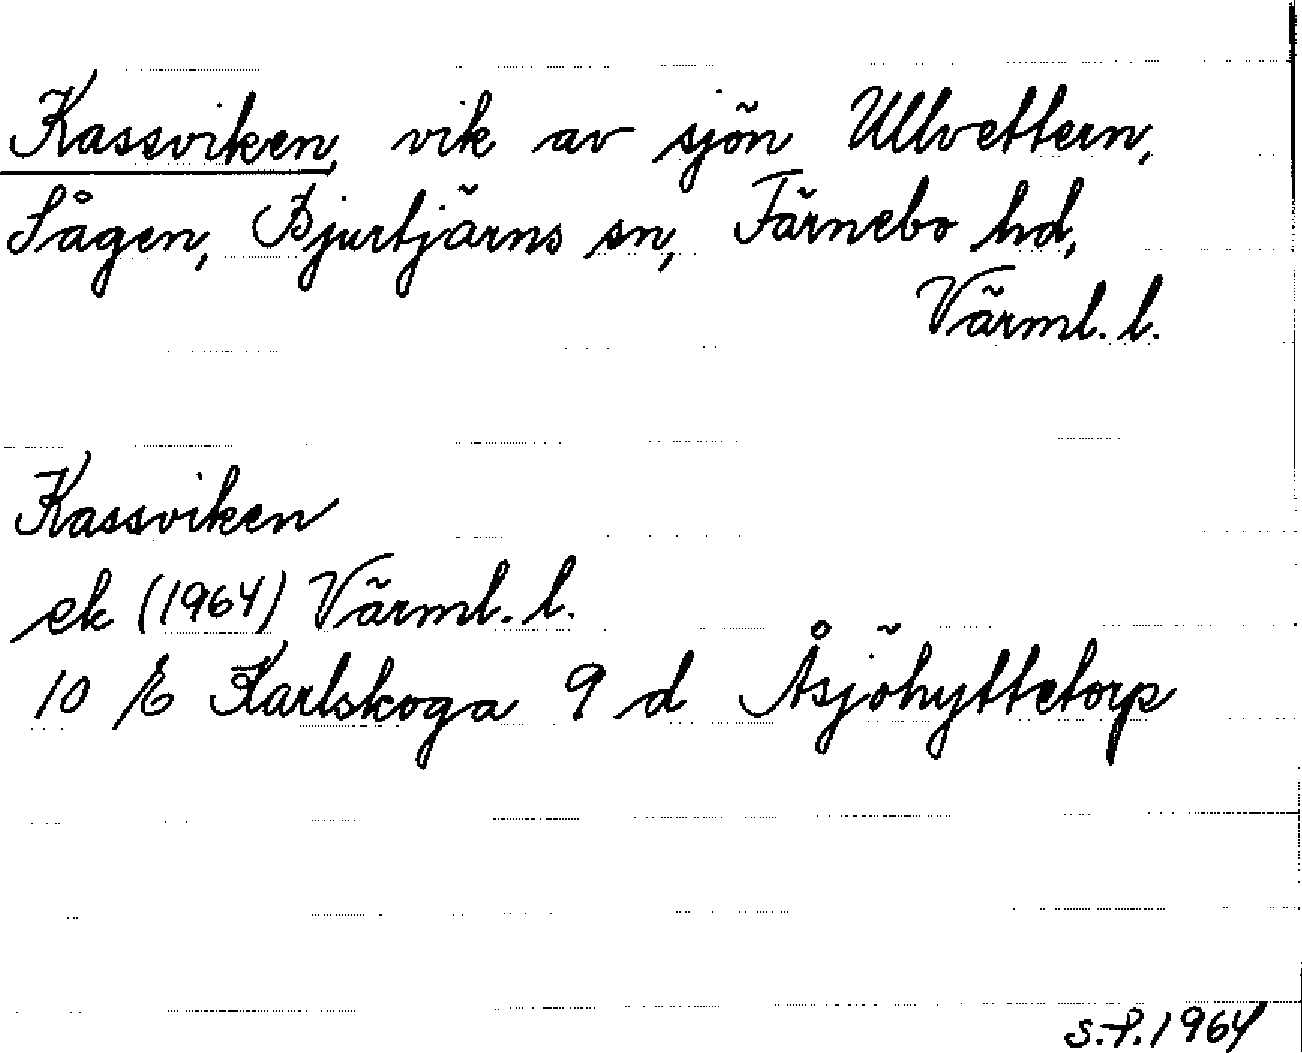 Kassviken, vik av sjön Ullvettern,
Sågen, Bjurtjärns sn, Färnebo hd,
Värml. l.
Kassviken
ek (1964) Värml. l.
10 E Karlskoga 9 d Åsjöhyttetorp
S.-P. 1964